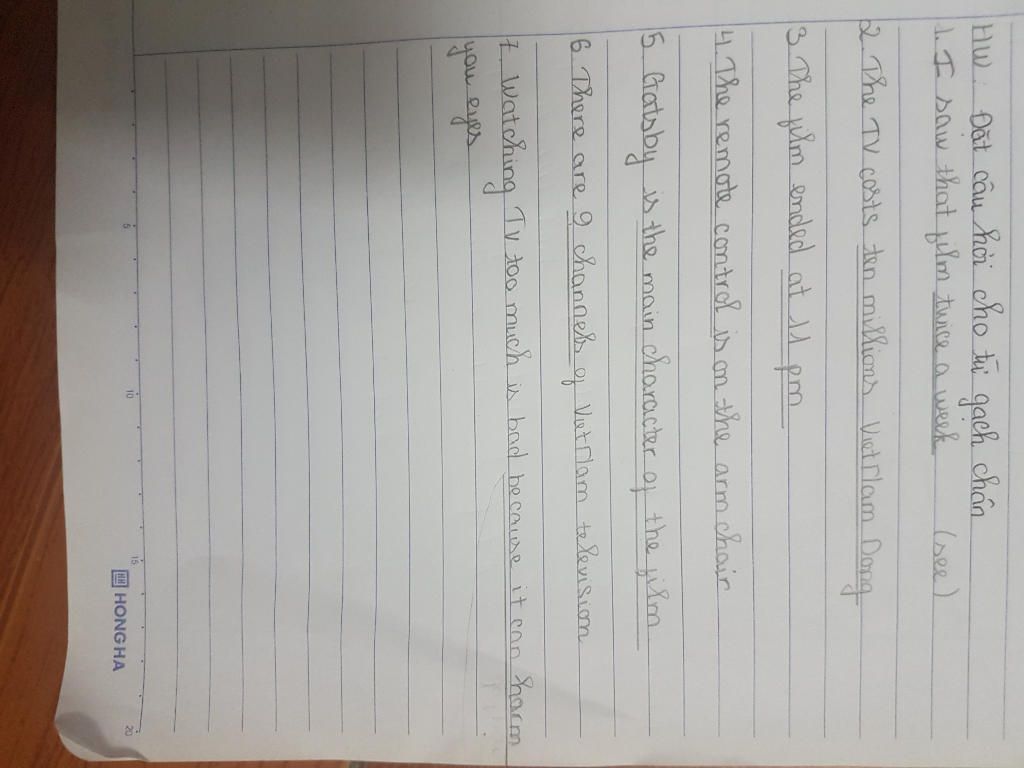 HW: Đặt câu hỏi cho từ gạch chân
1. I saw that film twice a week (see)
2. The TV costs ten millions VietNam Dong
3. The film ended at 11 pm
4. The remote control is on the armchair
5. Gatsby is the main character of the film
6. There are 9 channels of VietNam television
7. Watching TV too much is bad because it can harm
you eyes
5
10
15
20
HH HONG HA